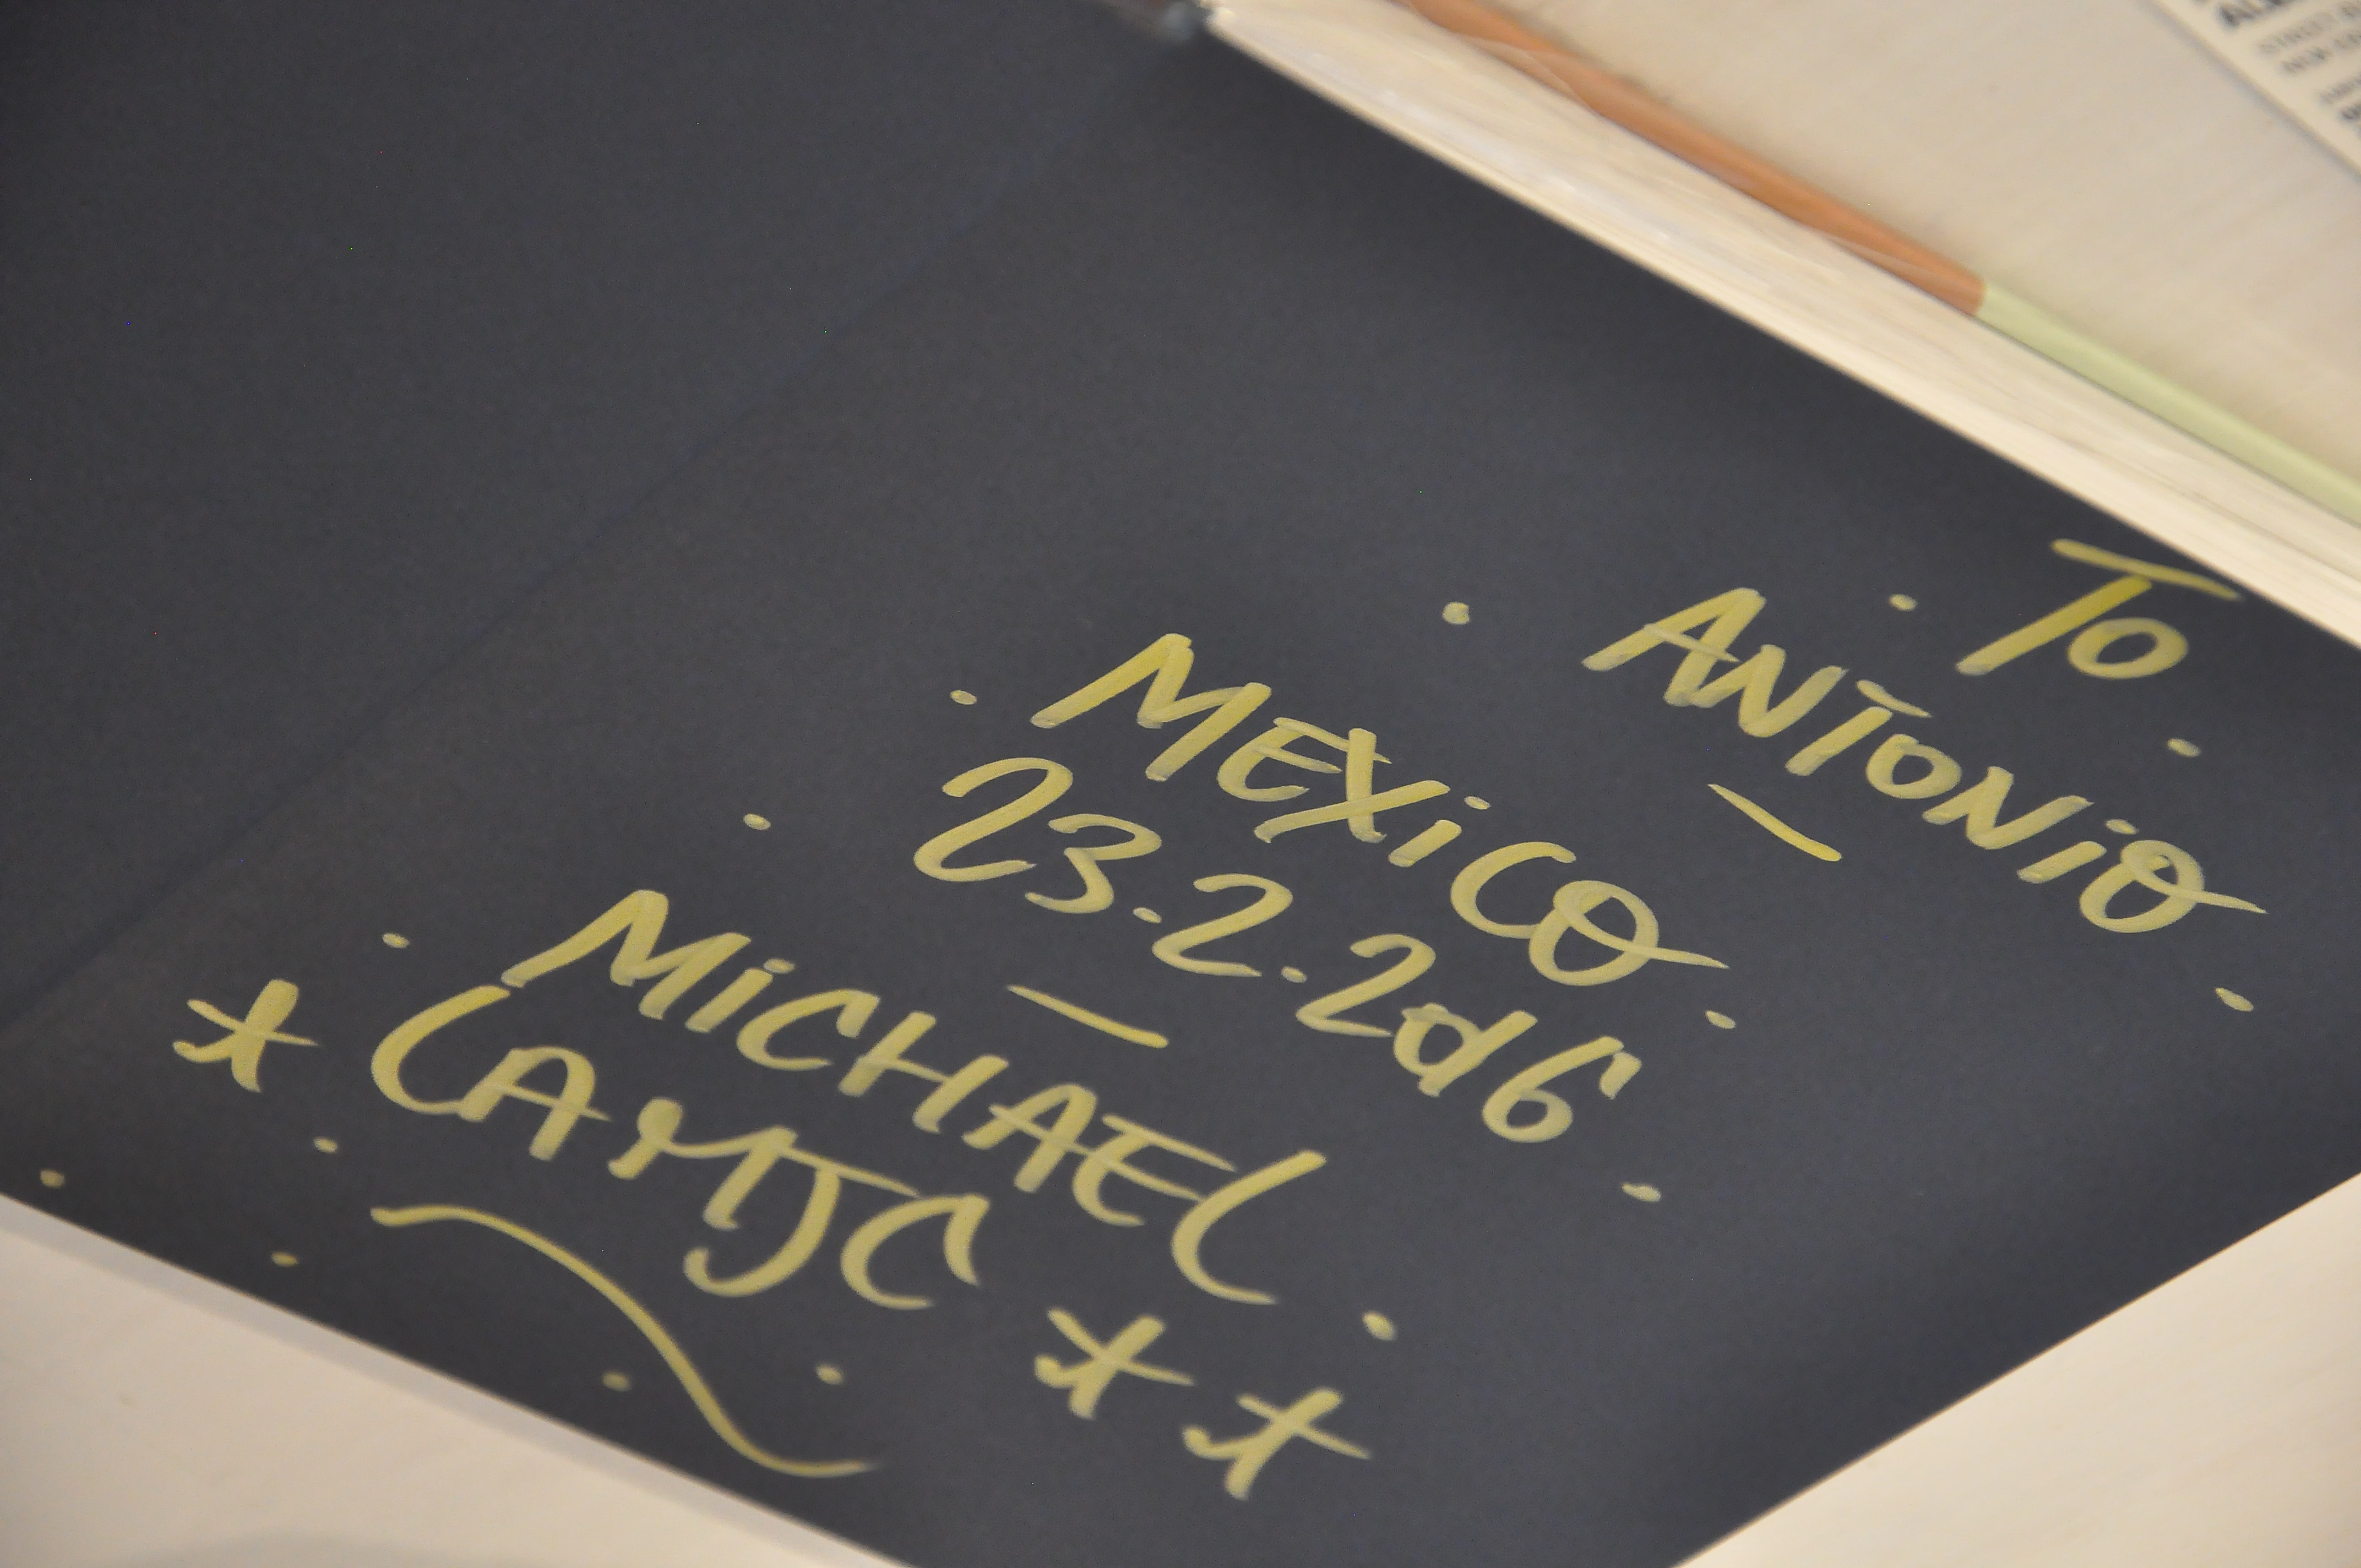 To
ANTONIO
MEXiCO
23.2.2006
MiCHAEL
LAMJC